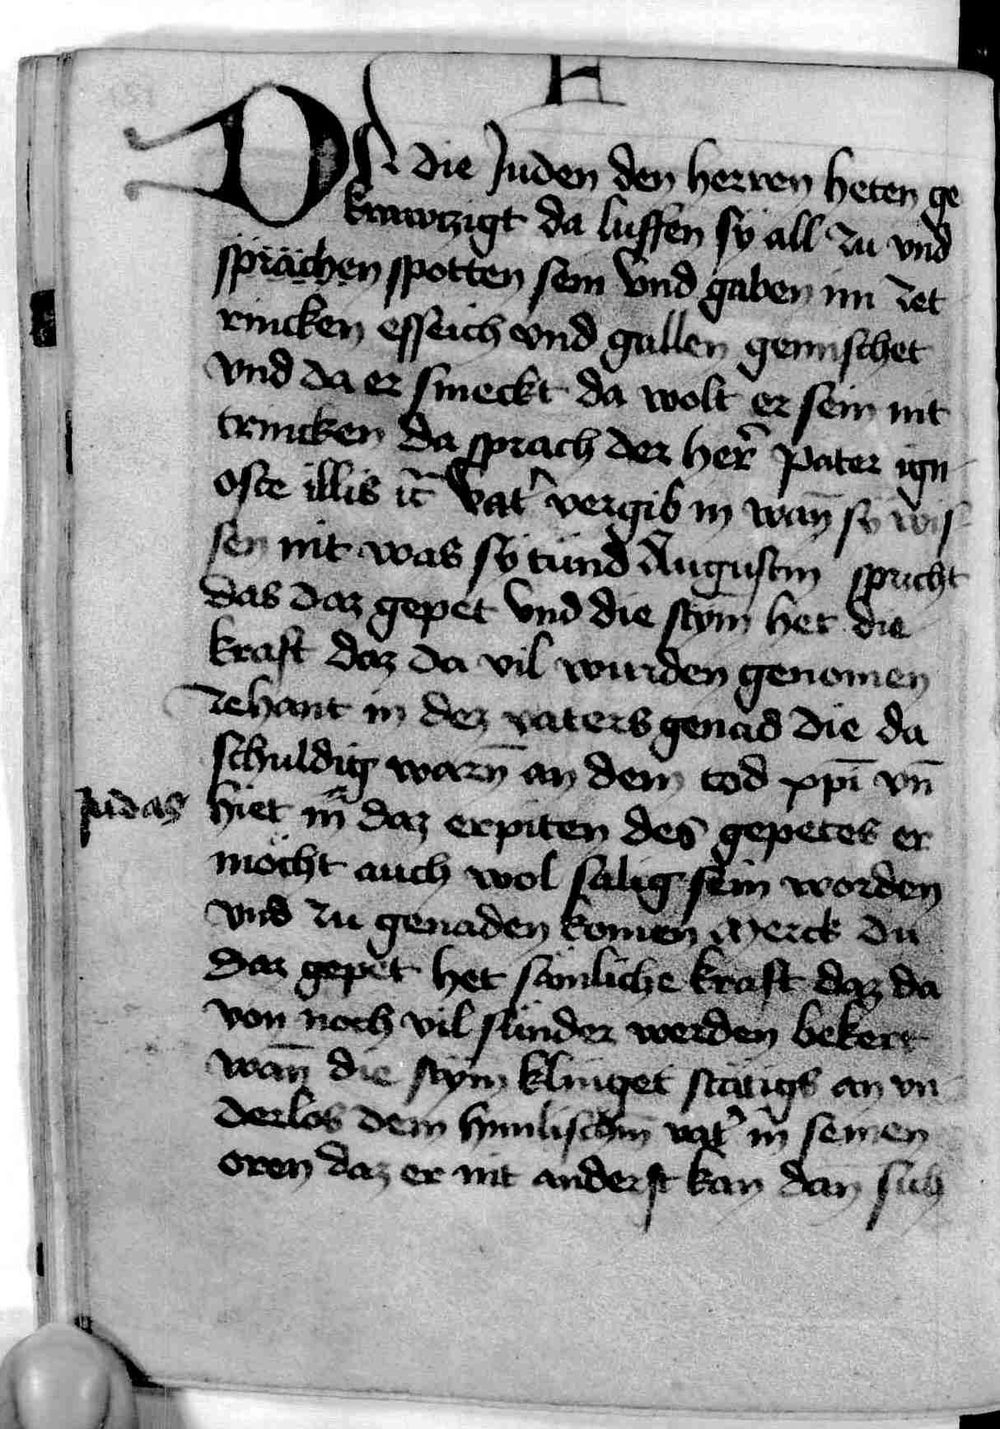 H
DA die Juden den herren heten ge
krawtzigt da luffen sÿ all zu vnd
sprächen spotten sein vnd gaben im zet
rincken esseich vnd gallen gemischet
vnd da er smeckt da wolt er sein nit
trincken da sprach der her̃ Pater ign
osce illis ic̃ Vat̉ vergib in wan̄ sÿ wis
sen nit was sÿ tünd Augustin spricht
das daz gepet vnd die stym̄ het die
kraft daz da vil wurden genomen
zehant in dez vaters genad die da
schuldig warn̄ an dem tod xp̄i vn̄
Judas hiet in̄ daz erpiten des gepetes er
möcht auch wol salig sein worden
vnd zu genaden komen Merck du
daz gepet het sömliche kraft daz da
von noch vil sünder werden bekert
wan̄ die stym̄ klinget stätigs an vn
derlos dem himlischen̄ vat̉ in seinen
oren daz er nit anderst kan dan̄ sich